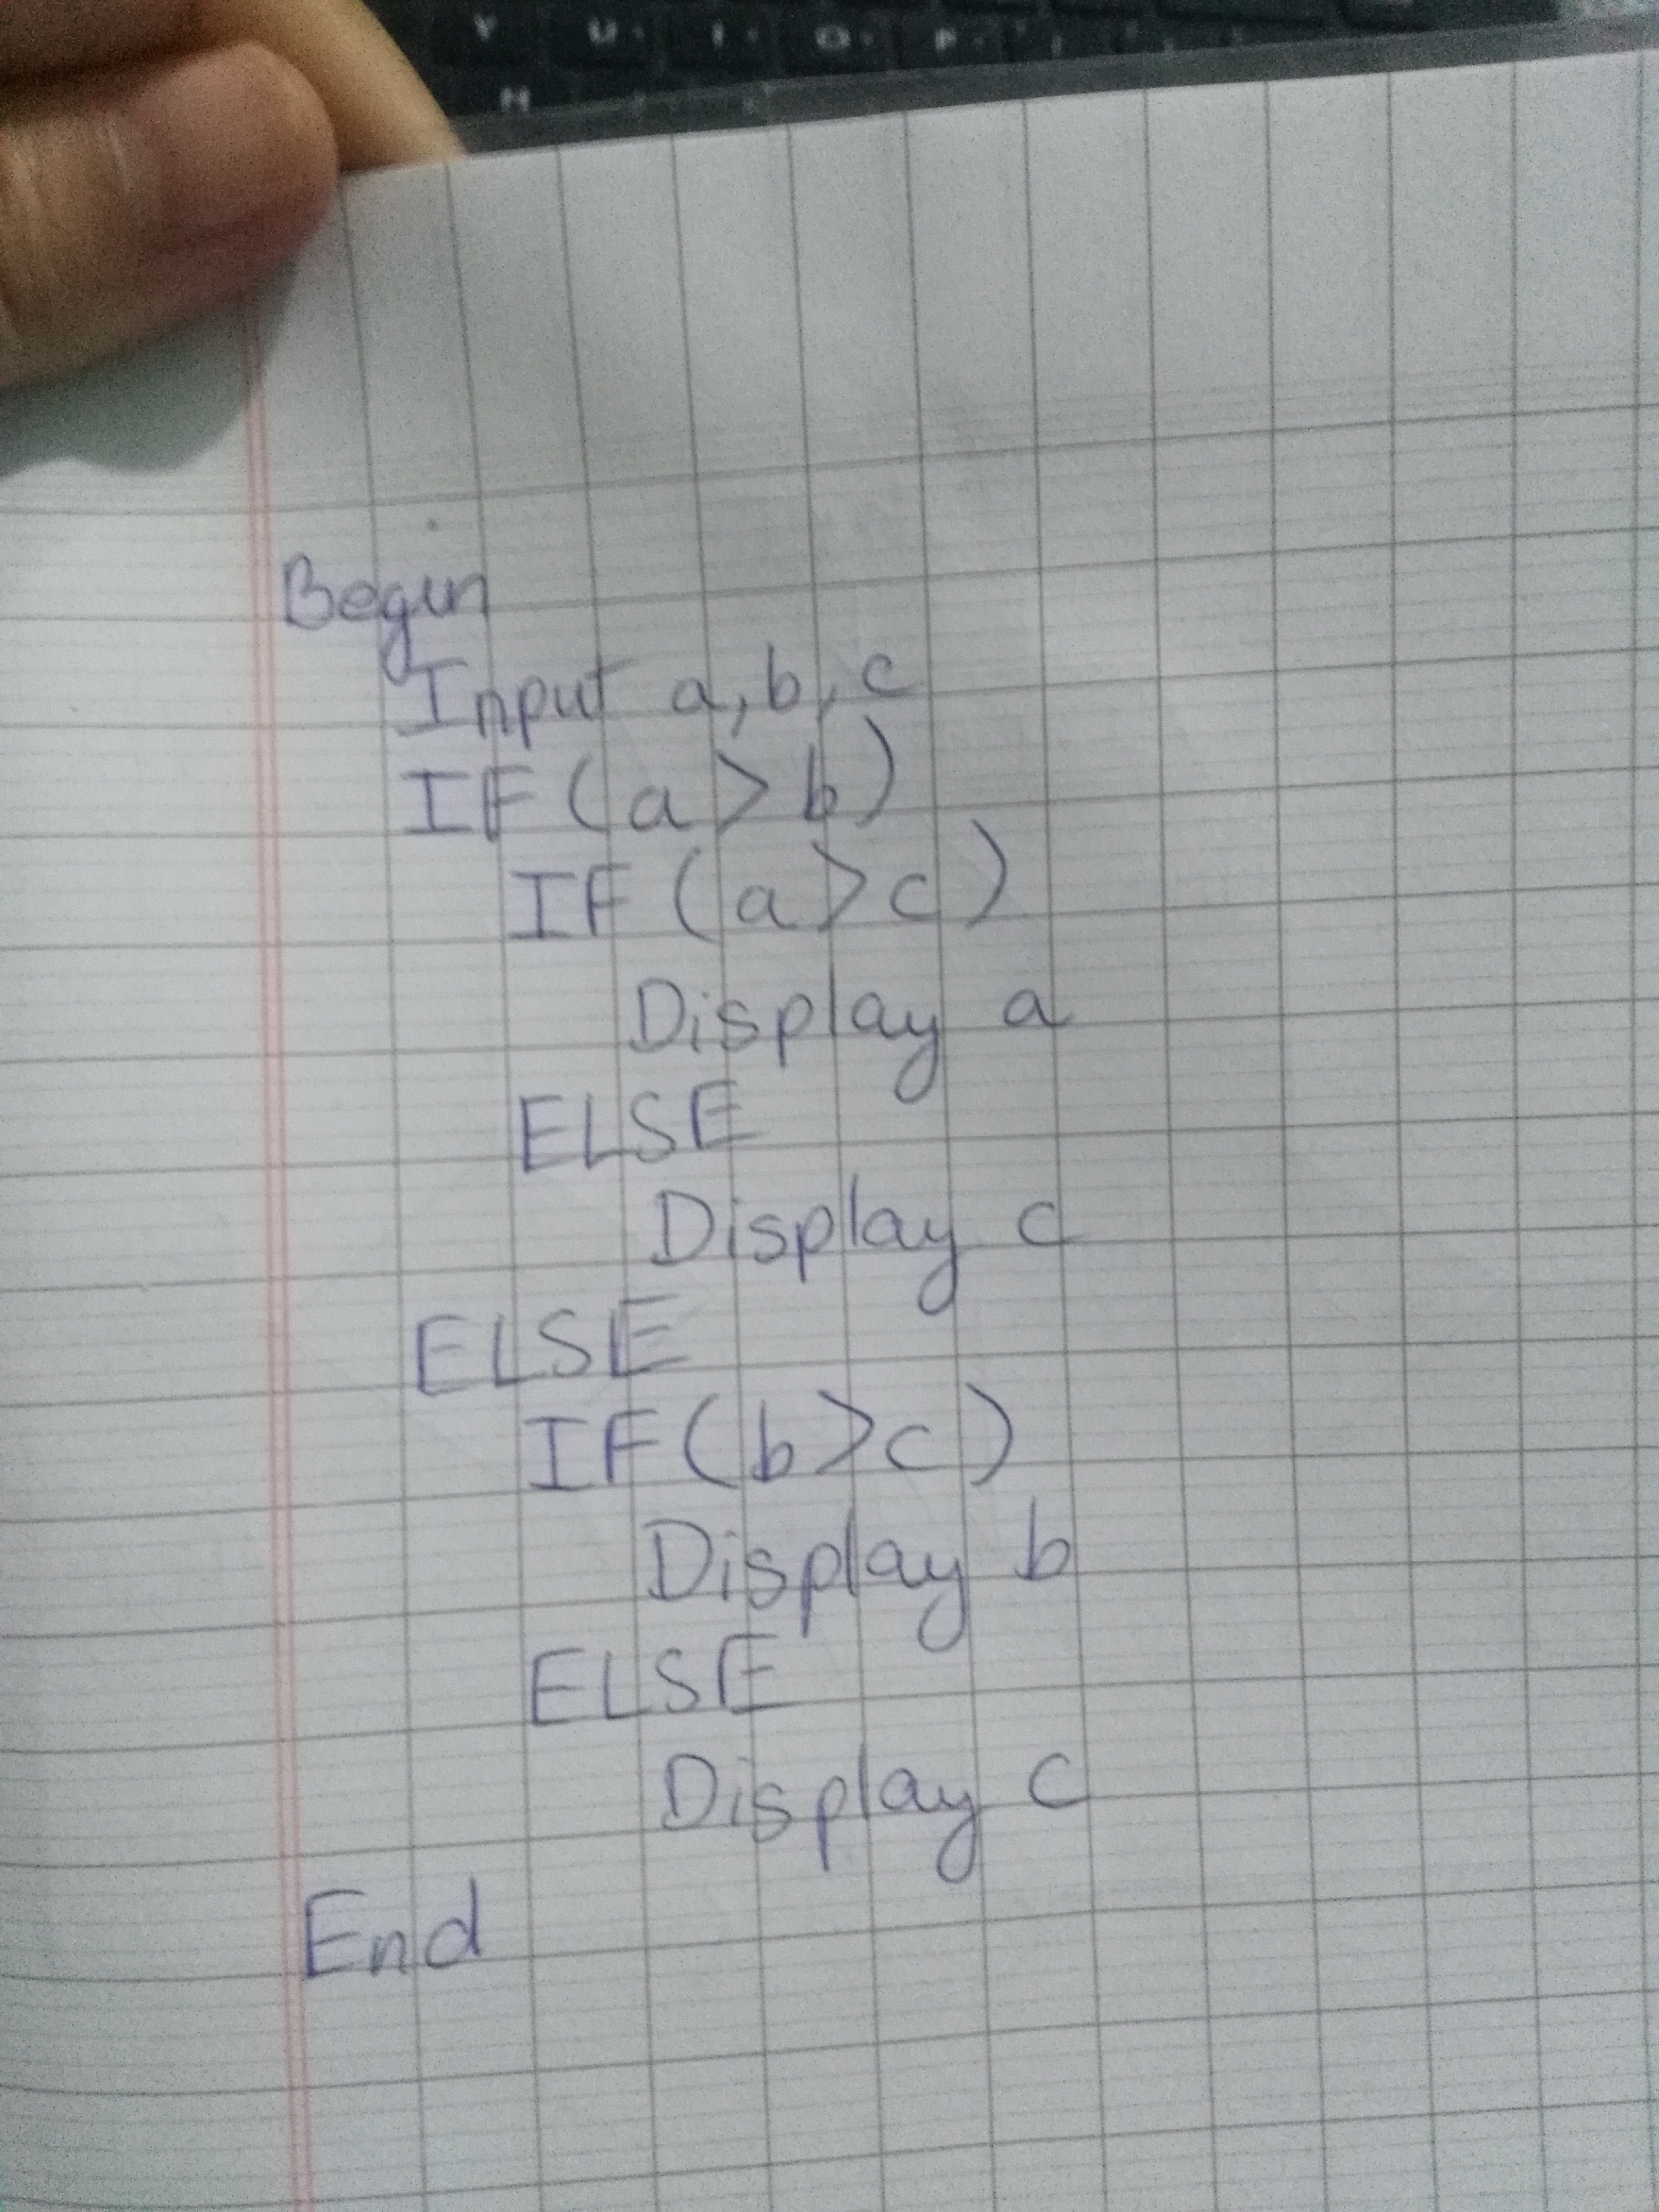 Y U I O P
H
Begin
Input a, b, c
IF (a > b)
IF (a > c)
Display a
ELSE
Display c
ELSE
IF (b > c)
Display b
ELSE
Display c
End